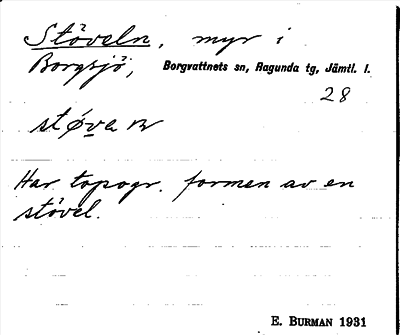 Stöveln, myr i
Borgsjö, Borgvattnets sn, Ragunda tg, Jämtl. l.
28
støvaɴ
Har topogr. formen av en
stövel.
E. BURMAN 1931